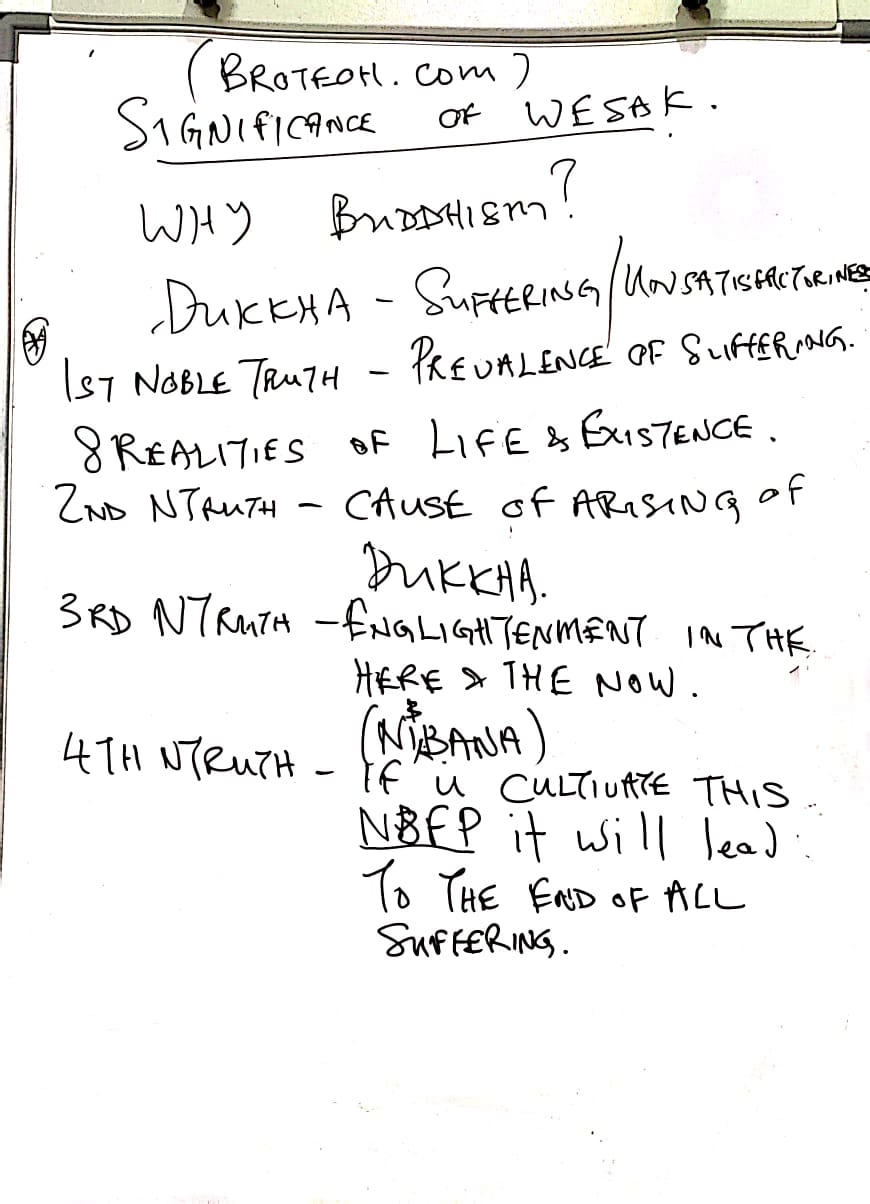 (BROTEOH.COM)
SIGNIFICANCE OF WESAK.
WHY BUDDHISM?
DUKKHA - SUFFERING/UNSATISFACTORINES
1ST NOBLE TRUTH - PREVALENCE OF SUFFERING.
8 REALITIES OF LIFE & EXISTENCE.
2ND NTRUTH - CAUSE OF ARISING OF
DUKKHA.
3RD NTRUTH - ENGLIGHTENMENT IN THE
HERE & THE NOW.
(NIBBANA)
4TH NTRUTH - If u CULTIVATE THIS
N8FP it will lead
TO THE END OF ALL
SUFFERING.